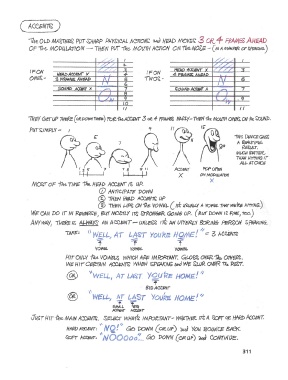 ACCENTS
THE OLD MASTERS PUT SHARP PHYSICAL ACTIONS AND HEAD MOVES 3 OR 4 FRAMES AHEAD
OF THE MODULATION — THEN PUT THE MOUTH ACTION ON THE NOSE —
IF ON ONES -
HEAD ACCENT X
4 FRAMES AHEAD
N
SOUND ACCENT X
O
IF ON TWOS -
HEAD ACCENT X
4 FRAMES AHEAD
N
SOUND ACCENT X
O
THEY GET UP THERE (OR DOWN THERE) FOR THE ACCENT 3 OR 4 FRAMES EARLY - THEN THE MOUTH COMES ON THE SOUND.
PUT SIMPLY -
ACCENT
X
POP OPEN
ON MODULATION
X
THIS DEVICE GIVES
A BEAUTIFUL
RESULT,
MUCH BETTER
THAN HITTING IT
ALL AT ONCE
MOST OF THE TIME THE HEAD ACCENT IS UP.
① ANTICIPATE DOWN
② THEN HEAD ACCENTS UP
③ THEN LIPS ON THE VOWEL (IT'S USUALLY A VOWEL THAT WE'RE HITTING)
WE CAN DO IT IN REVERSE, BUT MOSTLY IT'S STRONGER GOING UP. (BUT DOWN IS FINE, TOO.)
ANYWAY, THERE IS ALWAYS AN ACCENT - UNLESS IT'S AN UTTERLY BORING PERSON SPEAKING.
TAKE: "WELL, AT LAST YOU'RE HOME!" = 3 ACCENTS
VOWEL VOWEL VOWEL
HIT ONLY THE VOWELS WHICH ARE IMPORTANT. GLOSS OVER THE OTHERS.
WE HIT CERTAIN ACCENTS WHEN SPEAKING AND WE SLUR OVER THE REST.
OR "WELL, AT LAST YOU'RE HOME!"
BIG ACCENT
OR "WELL, AT LAST YOU'RE HOME!"
SMALL ACCENT BIG ACCENT
JUST HIT THE MAIN ACCENTS. SELECT WHAT'S IMPORTANT - WHETHER IT'S A SOFT OR HARD ACCENT.
HARD ACCENT: "NO!" GO DOWN (OR UP) AND YOU BOUNCE BACK.
SOFT ACCENT: "NOOooo." GO DOWN (OR UP) AND CONTINUE.
311